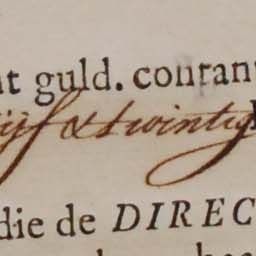 nt guld. courant
ijf & twintig
die de DIREC